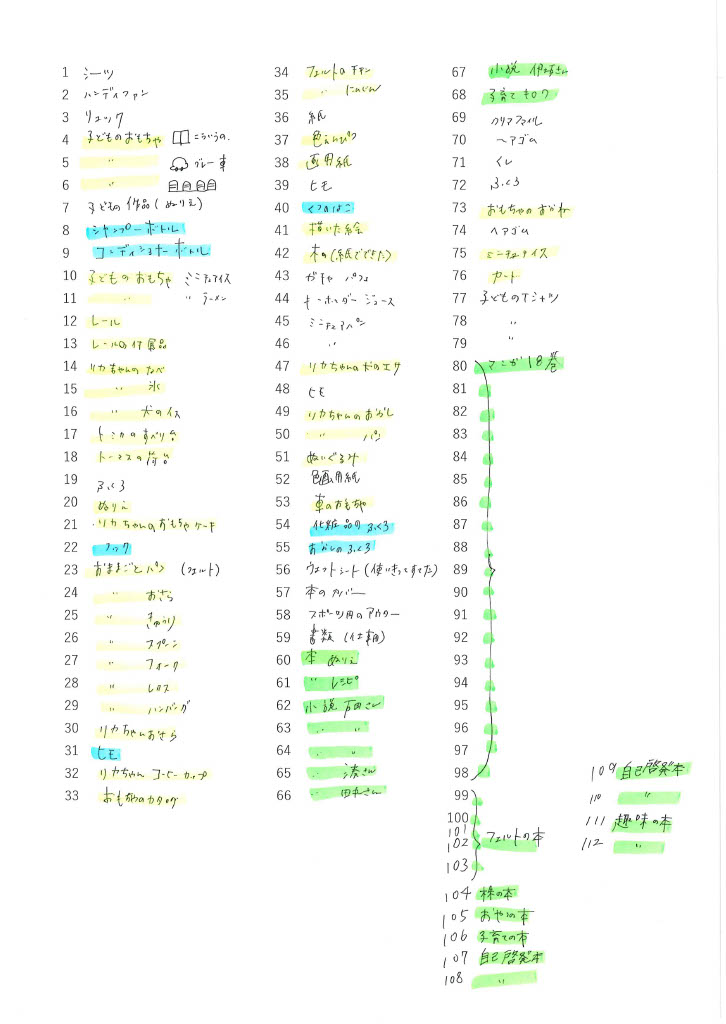 1 シーツ
2 ハンディファン
3 リュック
4 子どものおもちゃ こういうの
5 〃 ブルー車
6 〃
7 子どもの作品(ぬりえ)
8 シャンプーボトル
9 コンディショナーボトル
10 子どものおもちゃ ミニチュアアイス
11 〃 〃 ラーメン
12 レール
13 レールの付属品
14 リカちゃんのなべ
15 〃 氷
16 〃 犬のイス
17 トミカのすべり台
18 トーマスの荷台
19 ふくろ
20 ぬりえ
21 リカちゃんのおもちゃケーキ
22 フック
23 おままごとパン (フェルト)
24 〃 おさら
25 〃 きゅうり
26 〃 スプーン
27 〃 フォーク
28 〃 レタス
29 〃 ハンバーガ
30 リカちゃんおさら
31 ヒモ
32 リカちゃん コーヒーカップ
33 おもちゃのカタログ
34 フェルトのチキン
35 〃 にんじん
36 紙
37 色えんぴつ
38 画用紙
39 ヒモ
40 くつのはこ
41 描いた絵
42 木の(紙でできた)
43 ガチャ パフェ
44 キーホルダー ジュース
45 ミニチュアパン
46 〃
47 リカちゃんの犬のエサ
48 ヒモ
49 リカちゃんのおかし
50 〃 パン
51 ぬいぐるみ
52 色画用紙
53 車のおもちゃ
54 化粧品のふくろ
55 おかしのふくろ
56 ウェットシート(使いきってすてた)
57 本のカバー
58 スポーツ用のアウター
59 書類 (仕事用)
60 本 ぬりえ
61 〃 レシピ
62 小説 石田さん
63 〃 〃
64 〃 〃
65 〃 湊さん
66 〃 田丸さん
67 小説 伊坂さん
68 子育てキロク
69 クリアファイル
70 ヘアゴム
71 くし
72 ふくろ
73 おもちゃのおかね
74 ヘアゴム
75 ミニチュアアイス
76 カート
77 子どものTシャツ
78 〃
79 〃
80 マンガ18巻
81
82
83
84
85
86
87
88
89
90
91
92
93
94
95
96
97
98
99
100
101
102 フェルトの本
103
104 株の本
105 おやつの本
106 子育ての本
107 自己啓発本
108 〃
109 自己啓発本
110 〃
111 趣味の本
112 〃